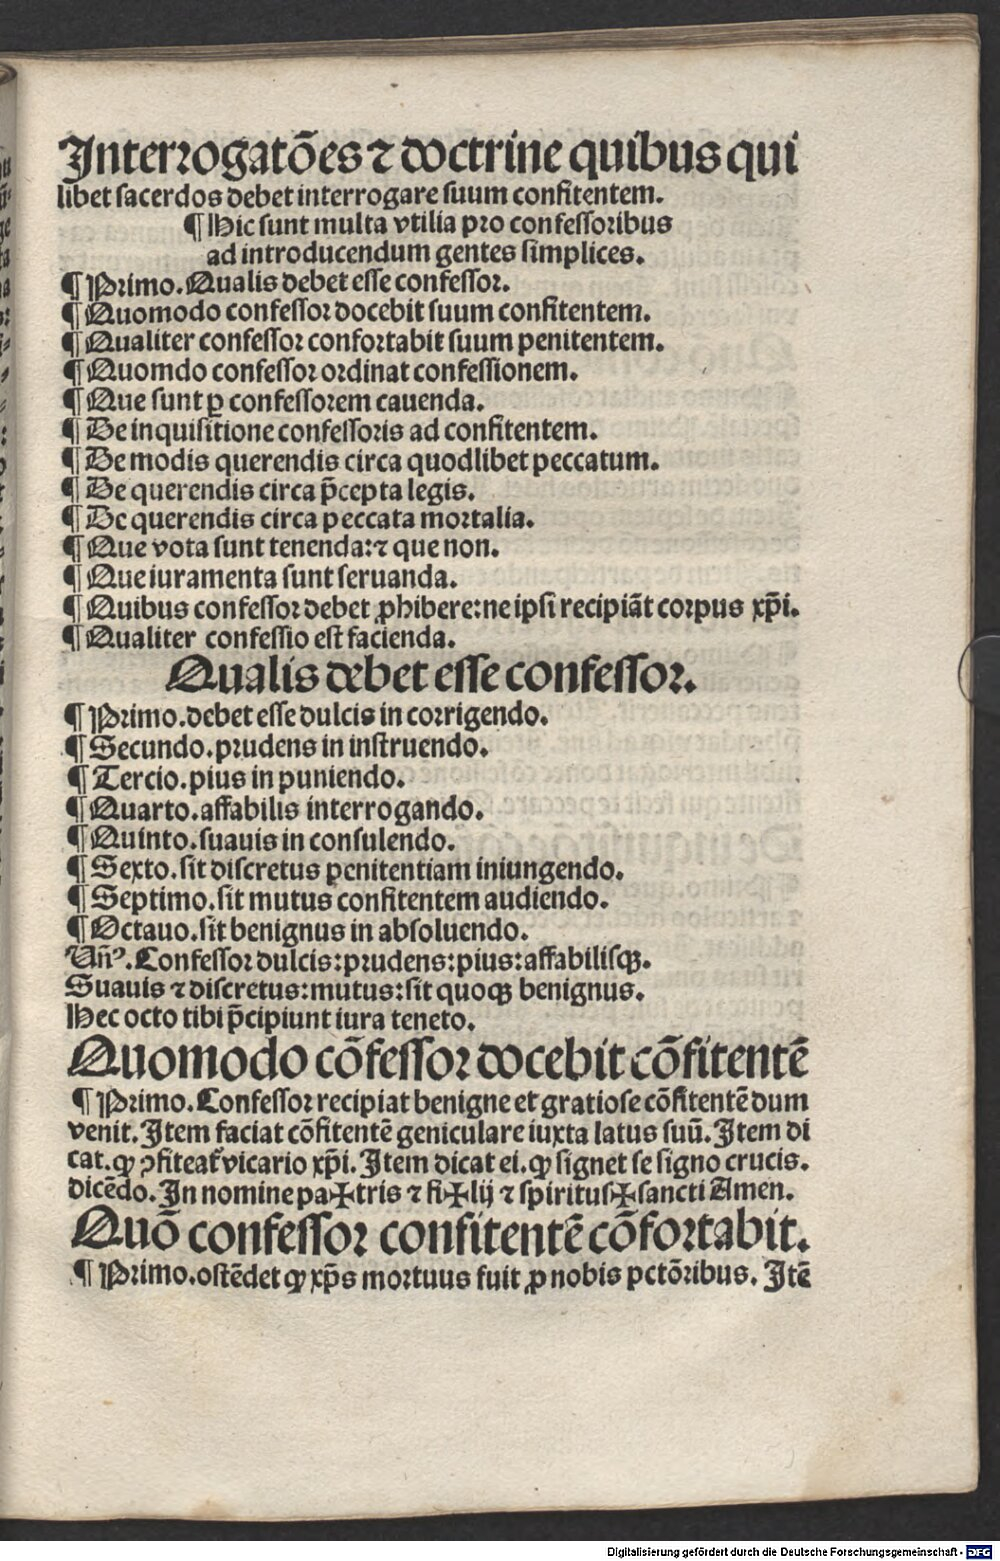 Interrogatões ⁊ doctrine quibus qui
libet sacerdos debet interrogare suum confitentem.
¶ Hic sunt multa vtilia pro confessoribus
ad introducendum gentes simplices.
¶ Primo. Qualis debet esse confessor.
¶ Quomodo confessor docebit suum confitentem.
¶ Qualiter confessor confortabit suum penitentem.
¶ Quomdo confessor ordinat confessionem.
¶ Que sunt ꝑ confessorem cauenda.
¶ De inquisitione confessoris ad confitentem.
¶ De modis querendis circa quodlibet peccatum.
¶ De querendis circa p̃cepta legis.
¶ De querendis circa peccata mortalia.
¶ Que vota sunt tenenda: ⁊ que non.
¶ Que iuramenta sunt seruanda.
¶ Quibus confessor debet ꝓhibere: ne ipsi recipiãt corpus xp̃i.
¶ Qualiter confessio est facienda.
Qualis debet esse confessor.
¶ Primo. debet esse dulcis in corrigendo.
¶ Secundo. prudens in instruendo.
¶ Tercio. pius in puniendo.
¶ Quarto. affabilis interrogando.
¶ Quinto. suauis in consulendo.
¶ Sexto. sit discretus penitentiam iniungendo.
¶ Septimo. sit mutus confitentem audiendo.
¶ Octauo. sit benignus in absoluendo.
Vñꝰ. Confessor dulcis: prudens: pius: affabilisqꝫ.
Suauis ⁊ discretus: mutus: sit quoqꝫ benignus.
Hec octo tibi p̃cipiunt iura teneto.
Quomodo cõfessor docebit cõfitentẽ
¶ Primo. Confessor recipiat benigne et gratiose cõfitentẽ dum
venit. Item faciat cõfitentẽ geniculare iuxta latus suũ. Item di
cat. ꝙ ꝯfiteat᷑ vicario xp̃i. Item dicat ei. ꝙ signet se signo crucis.
dicẽdo. In nomine pa✠tris ⁊ fi✠lij ⁊ spiritus✠sancti Amen.
Quõ confessor confitentẽ cõfortabit.
¶ Primo. ostẽdet ꝙ xp̃s mortuus fuit ꝓ nobis pctõribus. Itẽ
Digitalisierung gefördert durch die Deutsche Forschungsgemeinschaft - DFG